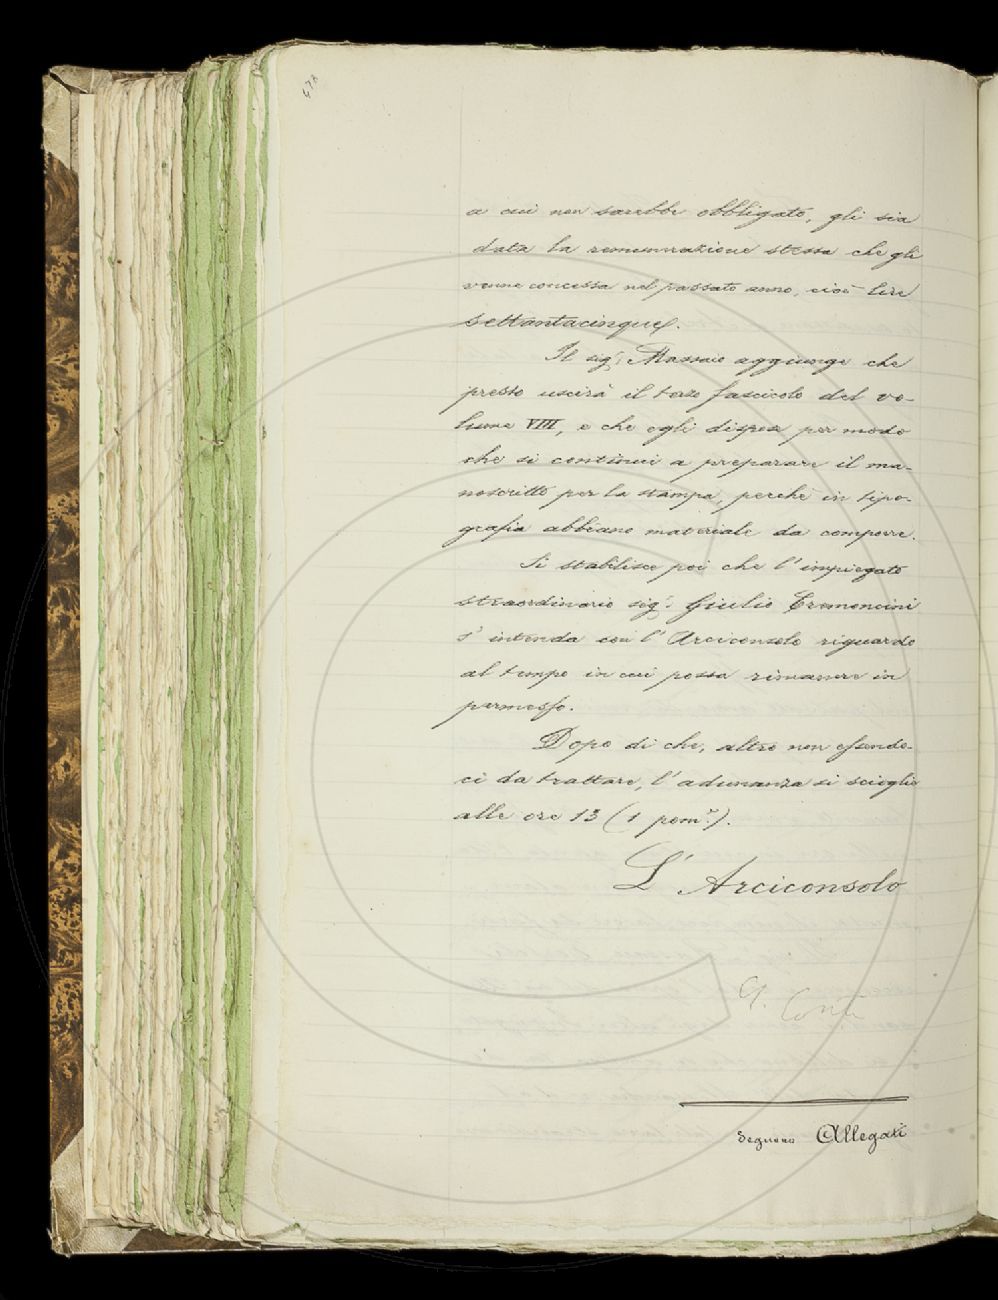 478
a cui non sarebbe obbligato, gli sia
data la remunerazione stessa che gli
venne concessa nel passato anno, cioè lire
settantacinque.
Il sig.r Massaio aggiunge che
presto uscirà il terzo fascicolo del vo-
lume VIII, e che egli dispose per modo
che si continui a preparare il ma-
noscritto per la stampa, perchè in tipo-
grafia abbiano materiale da comporre.
Si stabilisce poi che l'impiegato
straordinario sig.r Giulio Cremoncini
s'intenda con l'Arciconsolo riguardo
al tempo in cui possa rimanere in
permesso.
Dopo di che, altro non essendo-
ci da trattare, l'adunanza si scioglie
alle ore 13 (1 pom.e).
L'Arciconsolo
G. Conti
Seguono Allegati